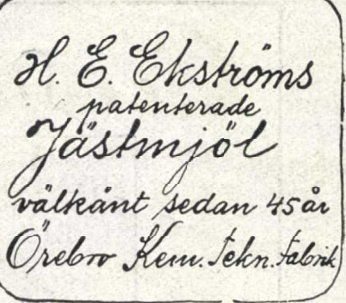 H. E. Ekströms
patenterade
Jästmjöl
välkänt sedan 45 år
Örebro Kem. Tekn. Fabrik